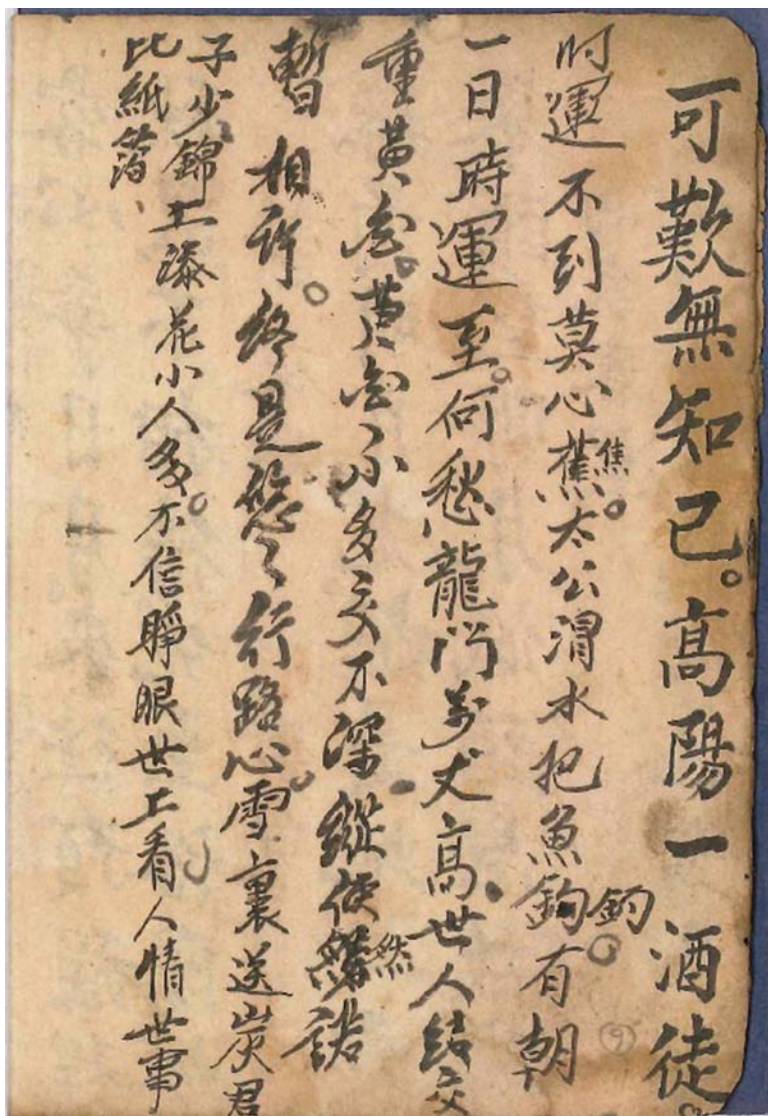 可歎無知己。高陽一酒徒。
时運不到莫心蕉焦。太公渭水把魚鉤釣。有朝
一日時運至。何愁龍门萬丈高。世人结交
重黄金。黄金不多交不深。縱使然諾
暫相许。終是悠々行路心。雪裏送炭君
子少錦上添花小人多。不信睁眼世上看人情世事
比紙薄、